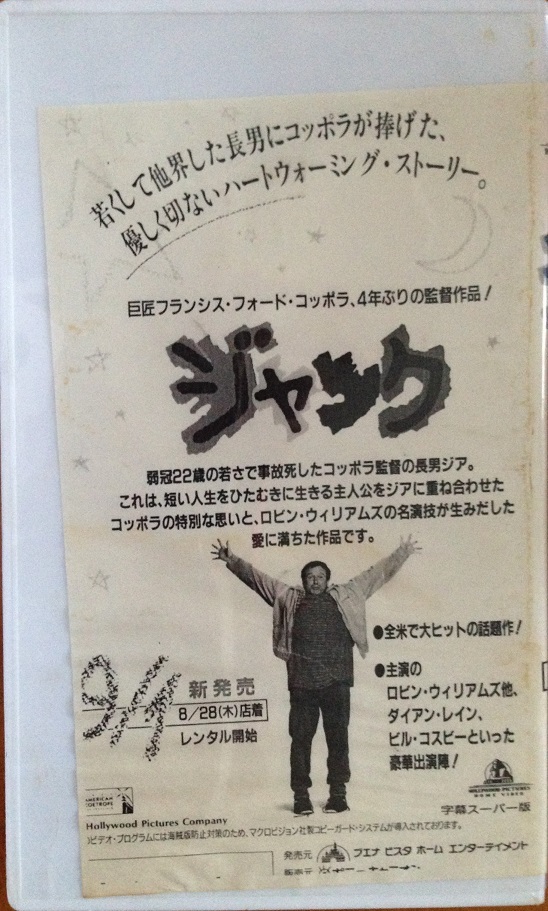 若くして他界した長男にコッポラが捧げた、
優しく切ないハートウォーミング・ストーリー。
巨匠フランシス・フォード・コッポラ、4年ぶりの監督作品！
ジャック
弱冠22歳の若さで事故死したコッポラ監督の長男ジア。
これは、短い人生をひたむきに生きる主人公をジアに重ね合わせた
コッポラの特別な思いと、ロビン・ウィリアムズの名演技が生みだした
愛に満ちた作品です。
●全米で大ヒットの話題作！
●主演の
ロビン・ウィリアムズ他、
ダイアン・レイン、
ビル・コスビーといった
豪華出演陣！
9/1
新発売
8/28(木)店着
レンタル開始
AMERICAN
ZOETROPE
HOLLYWOOD PICTURES
HOME VIDEO
字幕スーパー版
Hollywood Pictures Company
ビデオ・プログラムには海賊版防止対策のため、マクロビジョン社製コピーガード・システムが導入されております。
発売元 ブエナ ビスタ ホーム エンターテイメント